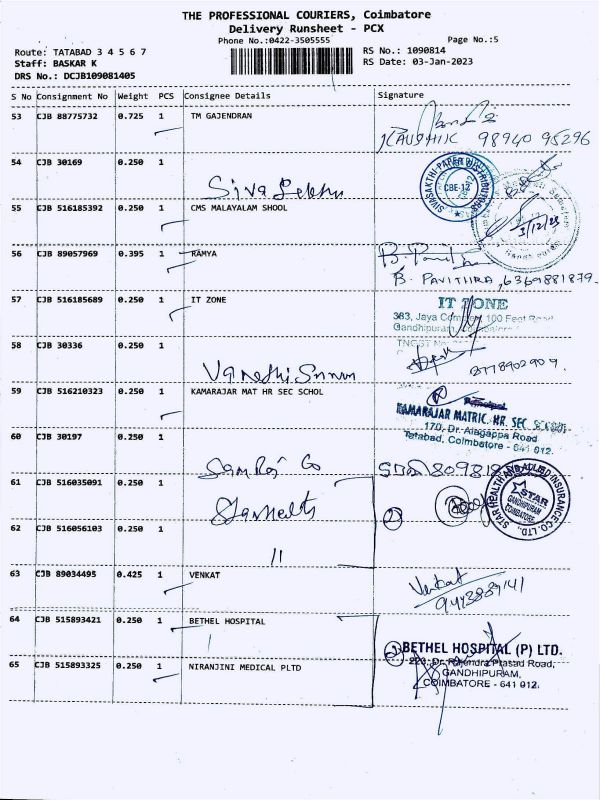 THE PROFESSIONAL COURIERS, Coimbatore
Delivery Runsheet - PCX
Phone No.:0422-3505555
Page No.:5
Route: TATABAD 3 4 5 6 7
RS No.: 1090814
Staff: BASKAR K
RS Date: 03-Jan-2023
DRS No.: DCJB109081405
S No Consignment No Weight PCS Consignee Details Signature
53 CJB 88775732 0.725 1 TM GAJENDRAN
KAUSHIK 98940 95296
54 CJB 30169 0.250 1
SIVASAKTHI PAPER DISTRIBUTORS
CBE-12
55 CJB 516185392 0.250 1 CMS MALAYALAM SHOOL
3/12/23
56 CJB 89057969 0.395 1 RAMYA
B. PAVITHRA, 6369881879.
57 CJB 516185689 0.250 1 IT ZONE
IT ZONE
383, Jaya 100 Feet Road
Gandhipuram,
58 CJB 30336 0.250 1
8778902909.
59 CJB 516210323 0.250 1 KAMARAJAR MAT HR SEC SCHOL
KAMARAJAR MATRIC. HR. SEC
170, Dr. Alagappa Road
Tatabad, Coimbatore - 641 012.
60 CJB 30197 0.250 1
61 CJB 516035091 0.250 1
2
STAR HEALTH AND ALLIED INSURANCE CO. LTD.
STAR
GANDHIPURAM
COIMBATORE
62 CJB 516056103 0.250 1
11
63 CJB 89034495 0.425 1 VENKAT
Venkat
64 CJB 515893421 0.250 1 BETHEL HOSPITAL
2 BETHEL HOSPITAL (P) LTD.
223, Dr. Rajendra Prasad Road,
GANDHIPURAM,
COIMBATORE - 641 012.
65 CJB 515893325 0.250 1 NIRANJINI MEDICAL PLTD